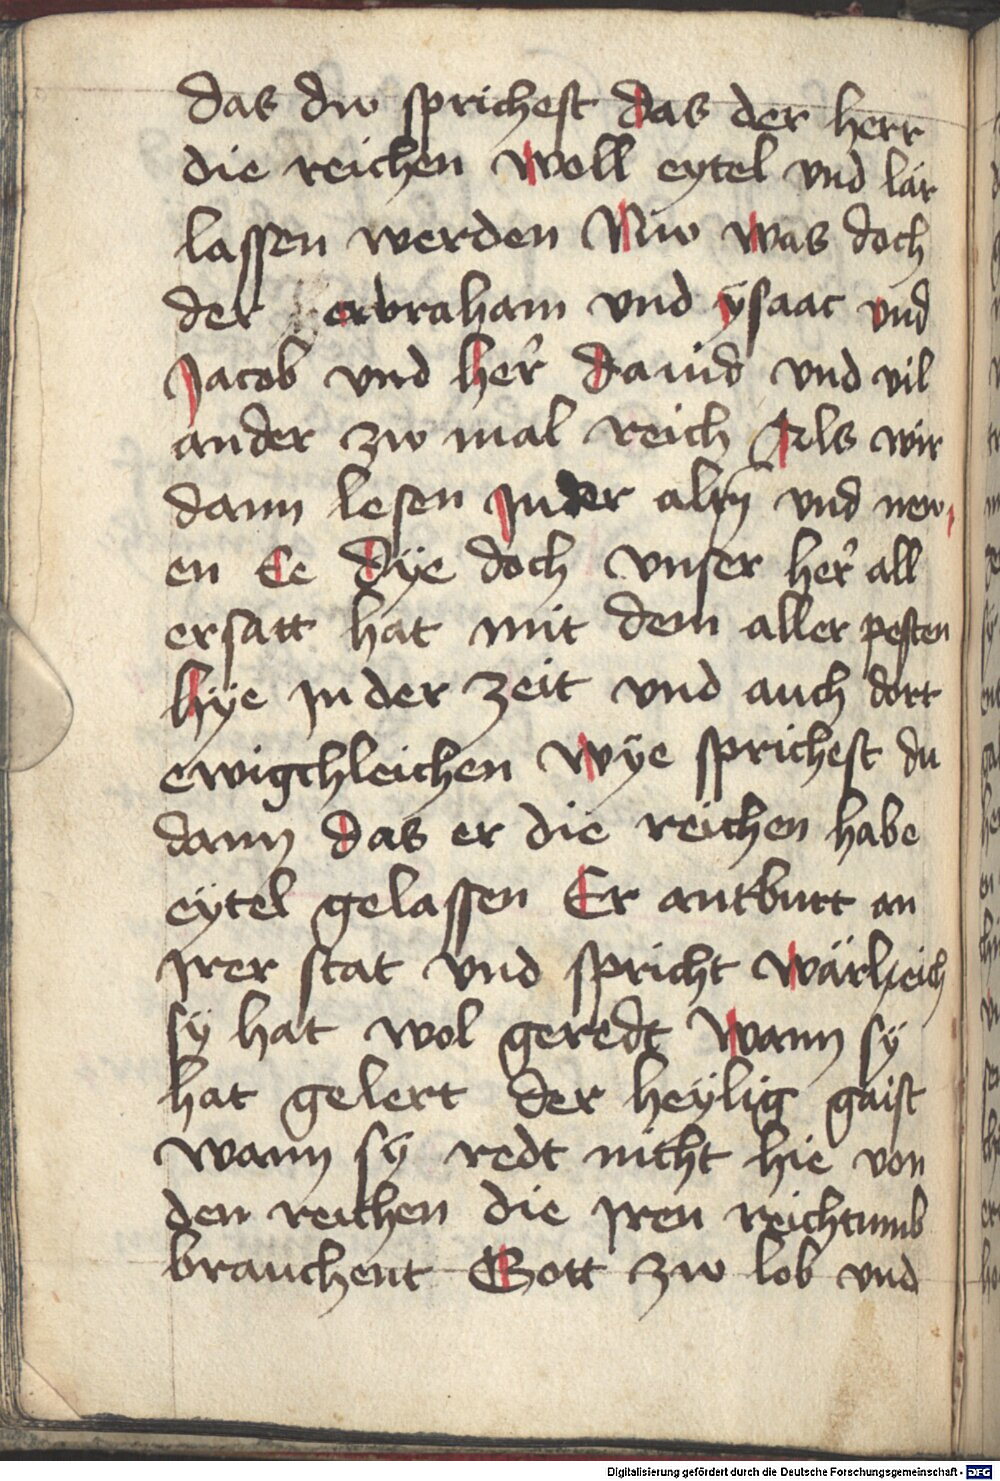 das dw sprichest das der herr
die reichen well eytel vnd lär
lassen werden Nw was doch
der abraham vnd ysaac vnd
Jacob vnd her dauid vnd vil
ander zw mal reich Als wir
dann lesen Jn der altn vnd new,
en Ee Dÿe doch vnser her all
ersatt hat mit dem aller pesten
hÿe Jn der zeit vnd auch dort
ewigchleichen Wÿe sprichest du
dann das er die reichen habe
eÿtel gelassen Er antburt an
Jrer stat vnd spricht Wärleich
sÿ hat wol geredt Wann sÿ
hat gelert der heÿlig gaist
wann sÿ redt nicht hie von
den reichen die Jren reichtumb
brauchent Gott zw lob vnd
Digitalisierung gefördert durch die Deutsche Forschungsgemeinschaft - DFG